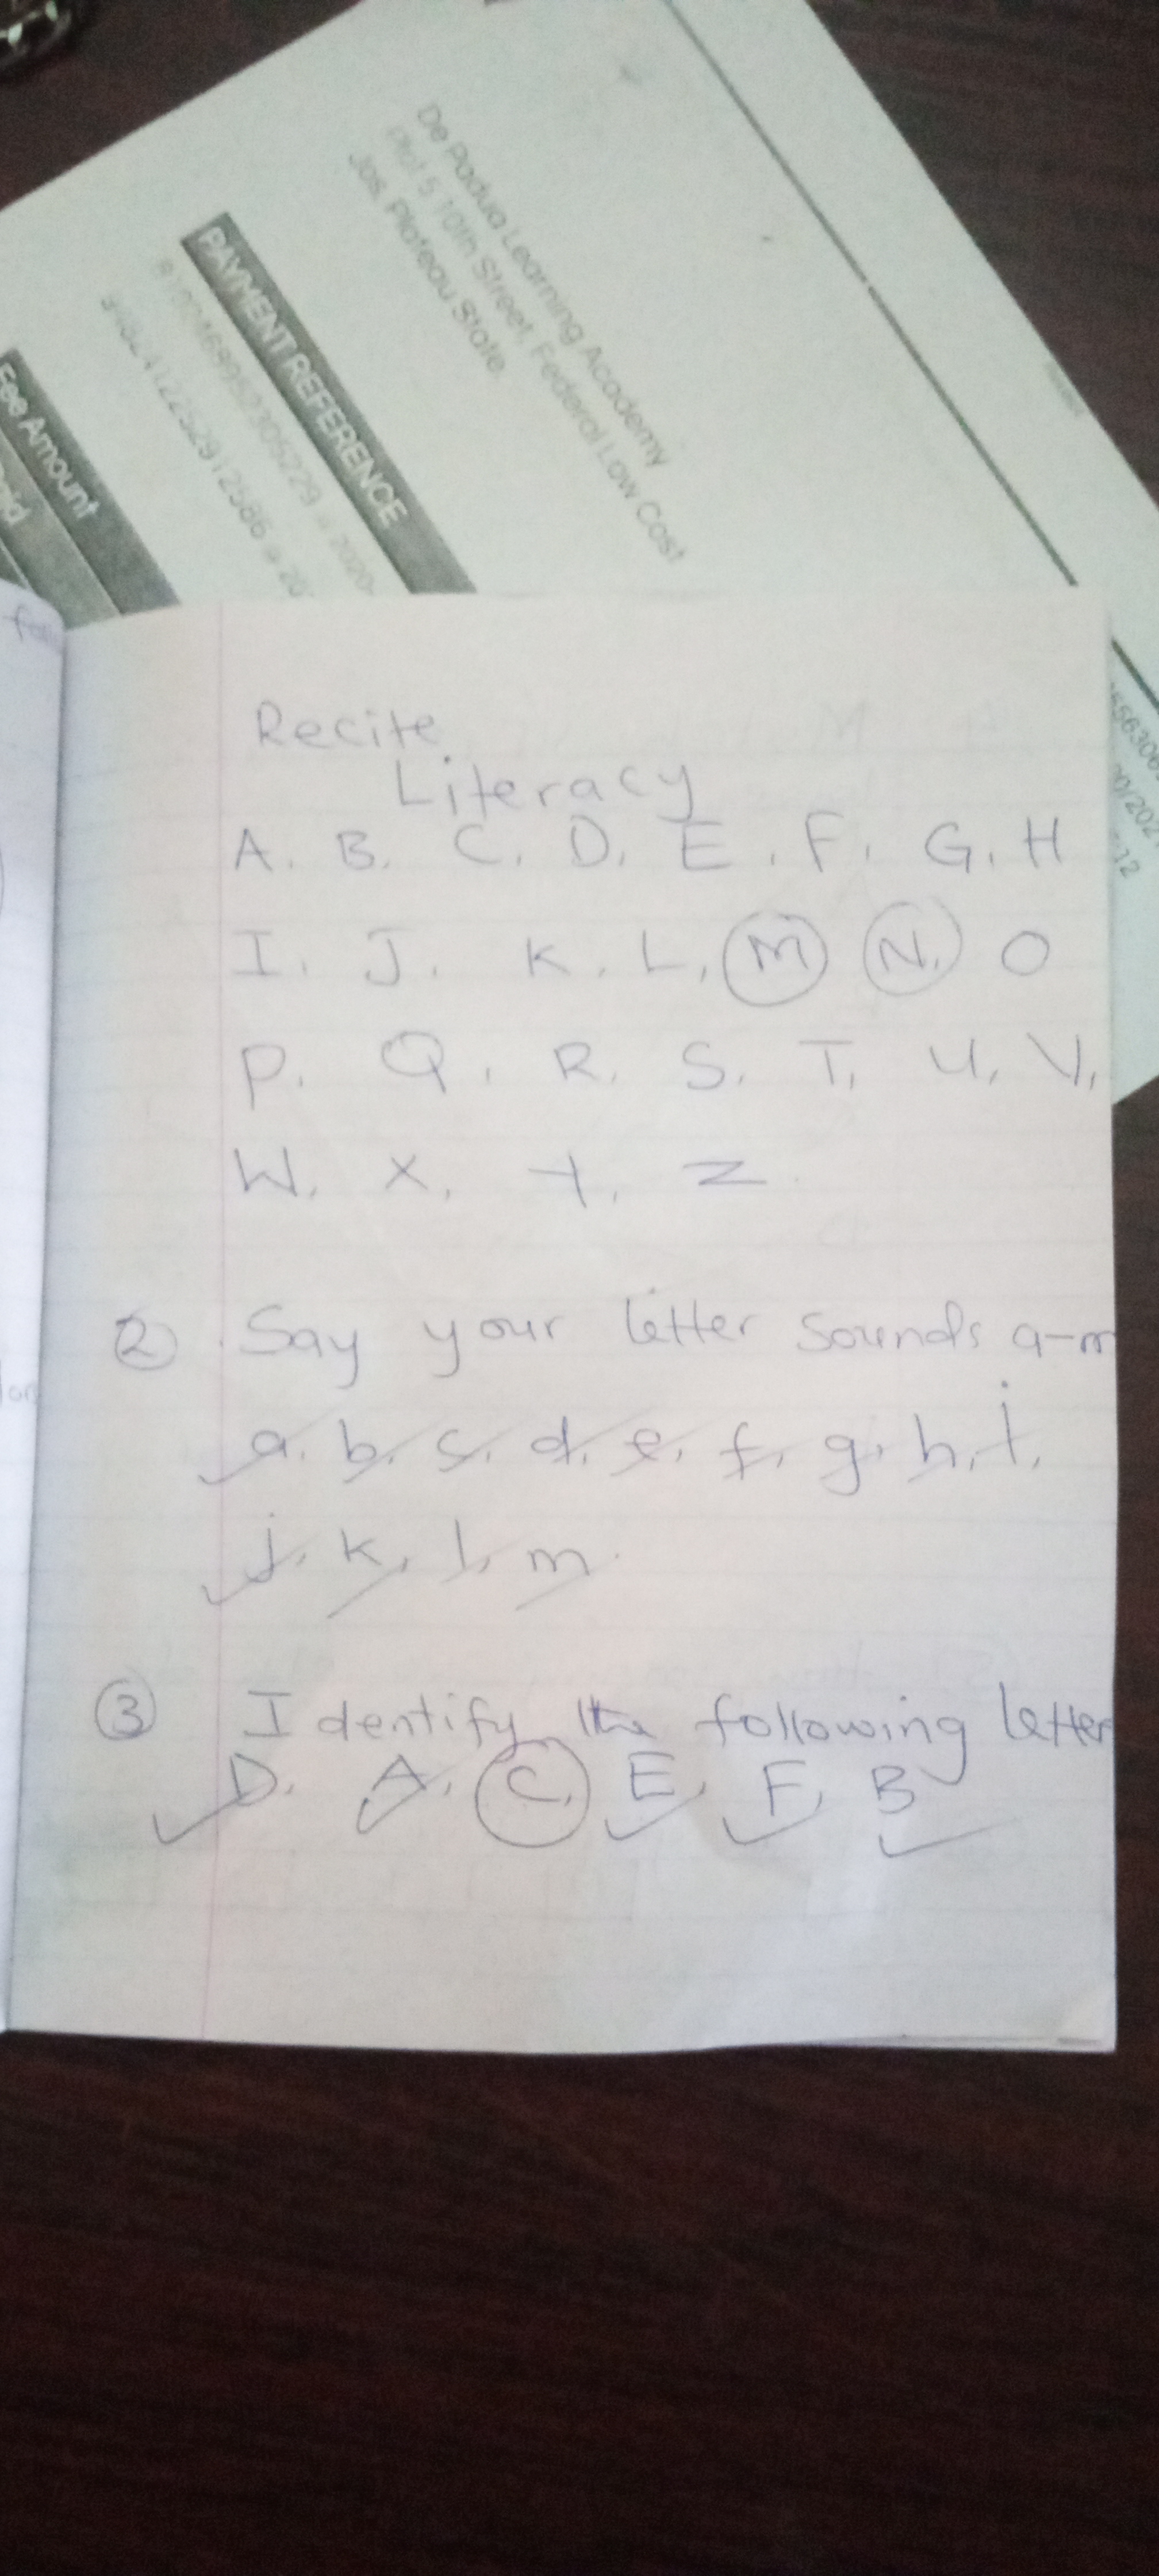 De Padua Learning Academy
Plot 5 10th Street, Federal Low Cost
Jos, Plateau State.
PAYMENT REFERENCE
Fee Amount
Recite
Literacy
A. B. C. D. E. F. G. H
I. J. K. L. M N. O
P. Q. R. S. T. U. V.
W. X. Y. Z.
2 Say your letter sounds a-m
a. b. c. d. e. f. g. h. i.
j. k. l. m.
3 Identify the following letter
D. A. C. E. F. B